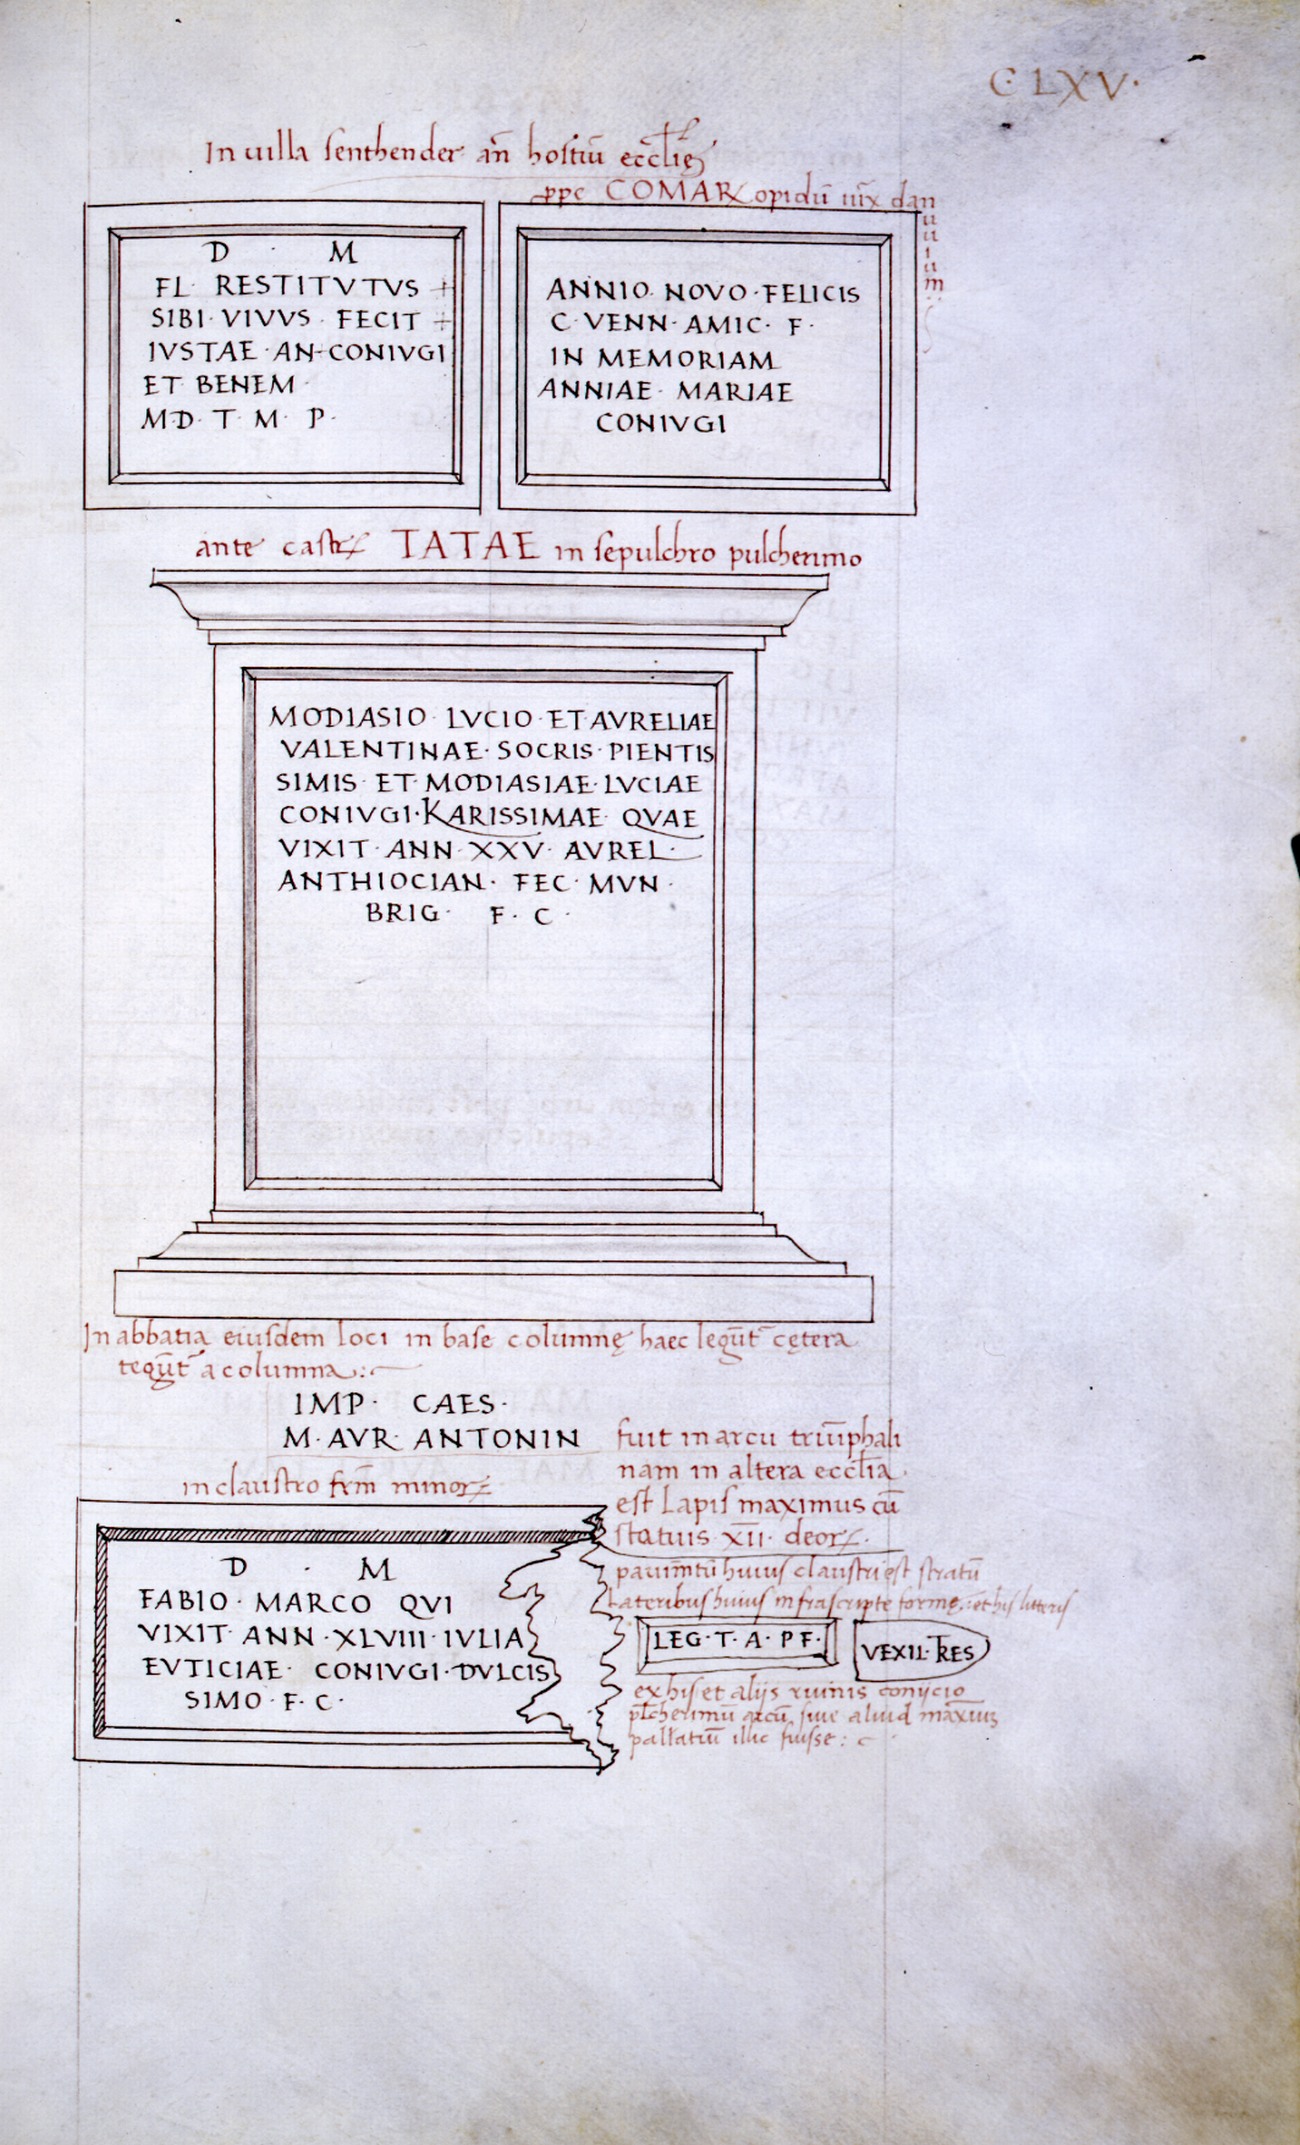 C·LXV·
In uilla senthender an̄ hostiū eccl̄ię
ppe COMAR opidū iux dan
uuium
D · M
FL· RESTITVTVS +
SIBI· VIVVS · FECIT +
IVSTAE · AN-CONIVGI
ET BENEM ·
M·D· T· M· P·
ANNIO· NOVO·FELICIS
C· VENN· AMIC· F·
IN MEMORIAM
ANNIAE· MARIAE
CONIVGI
ante castr TATAE in sepulchro pulcherimo
MODIASIO· LVCIO·ET AVRELIAE
VALENTINAE· SOCRIS· PIENTIS
SIMIS· ET MODIASIAE·LVCIAE
CONIVGI·KARISSIMAE· QVAE
VIXIT· ANN· XXV· AVREL·
ANTHIOCIAN· FEC· MVN·
BRIG· F· C·
In abbatia eiusdem loci in base columnę haec legūt̄ cętera
tegūt̄ a columna:
IMP· CAES·
M·AVR· ANTONIN
fuit in arcu triūphali
nam in altera eccl̄ia
est Lapis maximus cū
statuis XII· deor
in claustro frm̄ minor
D · M
FABIO· MARCO QVI
VIXIT· ANN·XLVIII·IVLIA
EVTICIAE· CONIVGI·DVLCIS
SIMO·F·C·
pauim̄tū huius claustri est stratū
Lateribus huius infrascripte formę: et his litteris
LEG·T·A·P F·
VEXIL·TRES
ex his et alijs ruinis conijcio
pl̄cherimū arcū, siue aliud maximū
pallatiū illic fuisse: